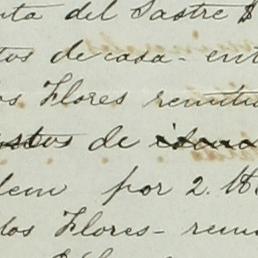 nta del Sastre $
tos de casa - ent
os Flores remitid
de
dem por 2. M
los Flores - rem